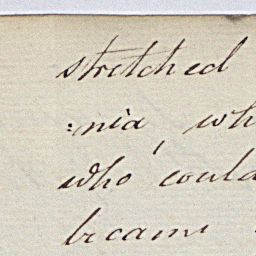 stretched
=nia, wh
who could
became